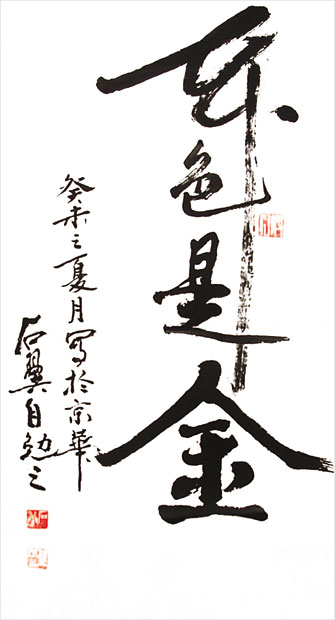 本色是金
癸未之夏月写於京華
石翼自勉之